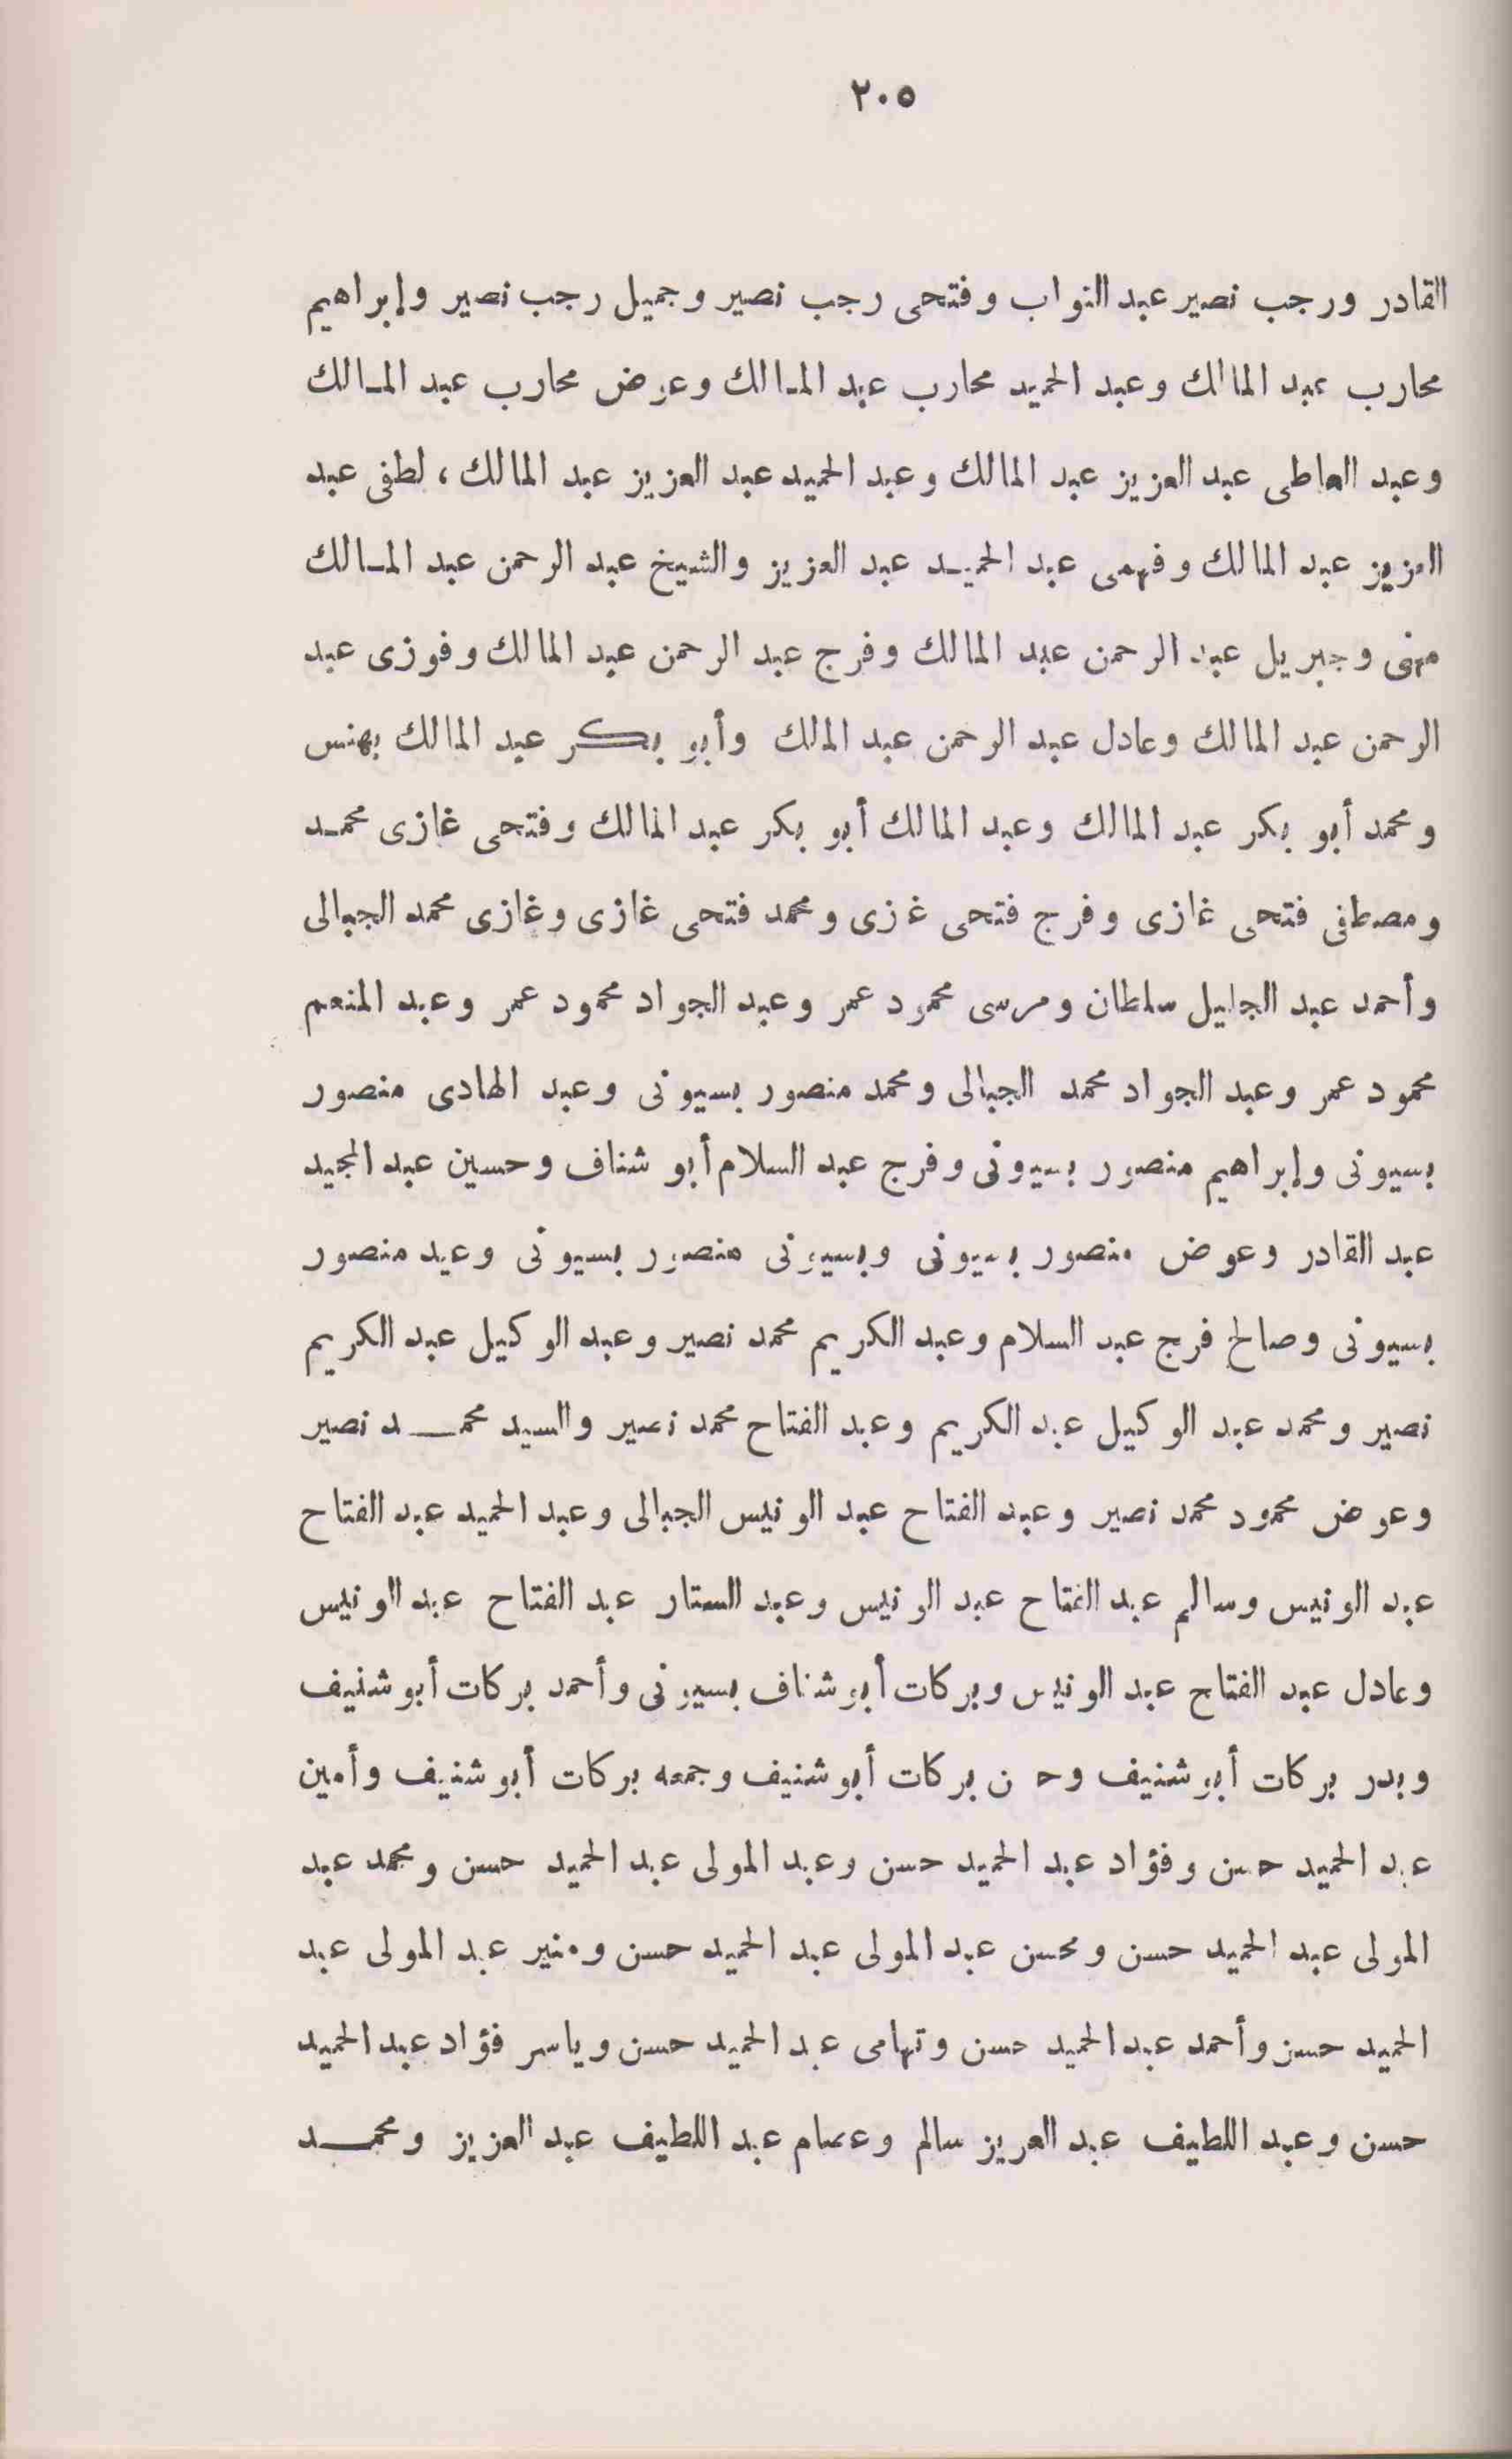 ٢٠٥
القادر ورجب نصير عبد النواب وفتحى رجب نصير وجميل رجب نصير وإبراهيم
محارب عبد المالك وعبد الحميد محارب عبد المالك وعوض محارب عبد المالك
وعبد العاطى عبد العزيز عبد المالك وعبد الحميد عبد العزيز عبد المالك ، لطفى عبد
العزيز عبد المالك وفهمى عبد الحميد عبد العزيز والشيخ عبد الرحمن عبد المالك
مهنى وجبريل عبد الرحمن عبد المالك وفرج عبد الرحمن عبد المالك وفوزى عبد
الرحمن عبد المالك وعادل عبد الرحمن عبد المالك وأبو بكر عبد المالك بهنس
ومحمد أبو بكر عبد المالك وعبد المالك أبو بكر عبد المالك وفتحى غازى محمد
ومصطفى فتحى غازى وفرج فتحى غازى ومحمد فتحى غازى وغازى محمد الجبالى
وأحمد عبد الجليل سلطان ومرسى محمود عمر وعبد الجواد محمود عمر وعبد المنعم
محمود عمر وعبد الجواد محمد الجبالى ومحمد منصور بسيونى وعبد الهادى منصور
بسيونى وإبراهيم منصور بسيونى وفرج عبد السلام أبو شناف وحسين عبد المجيد
عبد القادر وعوض منصور بسيونى وبسيونى منصور بسيونى وعيد منصور
بسيونى وصالح فرج عبد السلام وعبد الكريم محمد نصير وعبد الوكيل عبد الكريم
نصير ومحمد عبد الوكيل عبد الكريم وعبد الفتاح محمد نصير والسيد محمد نصير
وعوض محمود محمد نصير وعبد الفتاح عبد الونيس الجبالى وعبد الحميد عبد الفتاح
عبد الونيس وسالم عبد الفتاح عبد الونيس وعبد الستار عبد الفتاح عبد الونيس
وعادل عبد الفتاح عبد الونيس وبركات أبو شناف بسيونى وأحمد بركات أبو شنيف
وبدر بركات أبو شنيف وحسن بركات أبو شنيف وجمعه بركات أبو شنيف وأمين
عبد الحميد حسن وفؤاد عبد الحميد حسن وعبد المولى عبد الحميد حسن ومحمد عبد
المولى عبد الحميد حسن ومحسن عبد المولى عبد الحميد حسن ومنير عبد المولى عبد
الحميد حسن وأحمد عبد الحميد حسن وتهامى عبد الحميد حسن وياسر فؤاد عبد الحميد
حسن وعبد اللطيف عبد العزيز سالم وعصام عبد اللطيف عبد العزيز ومحمد